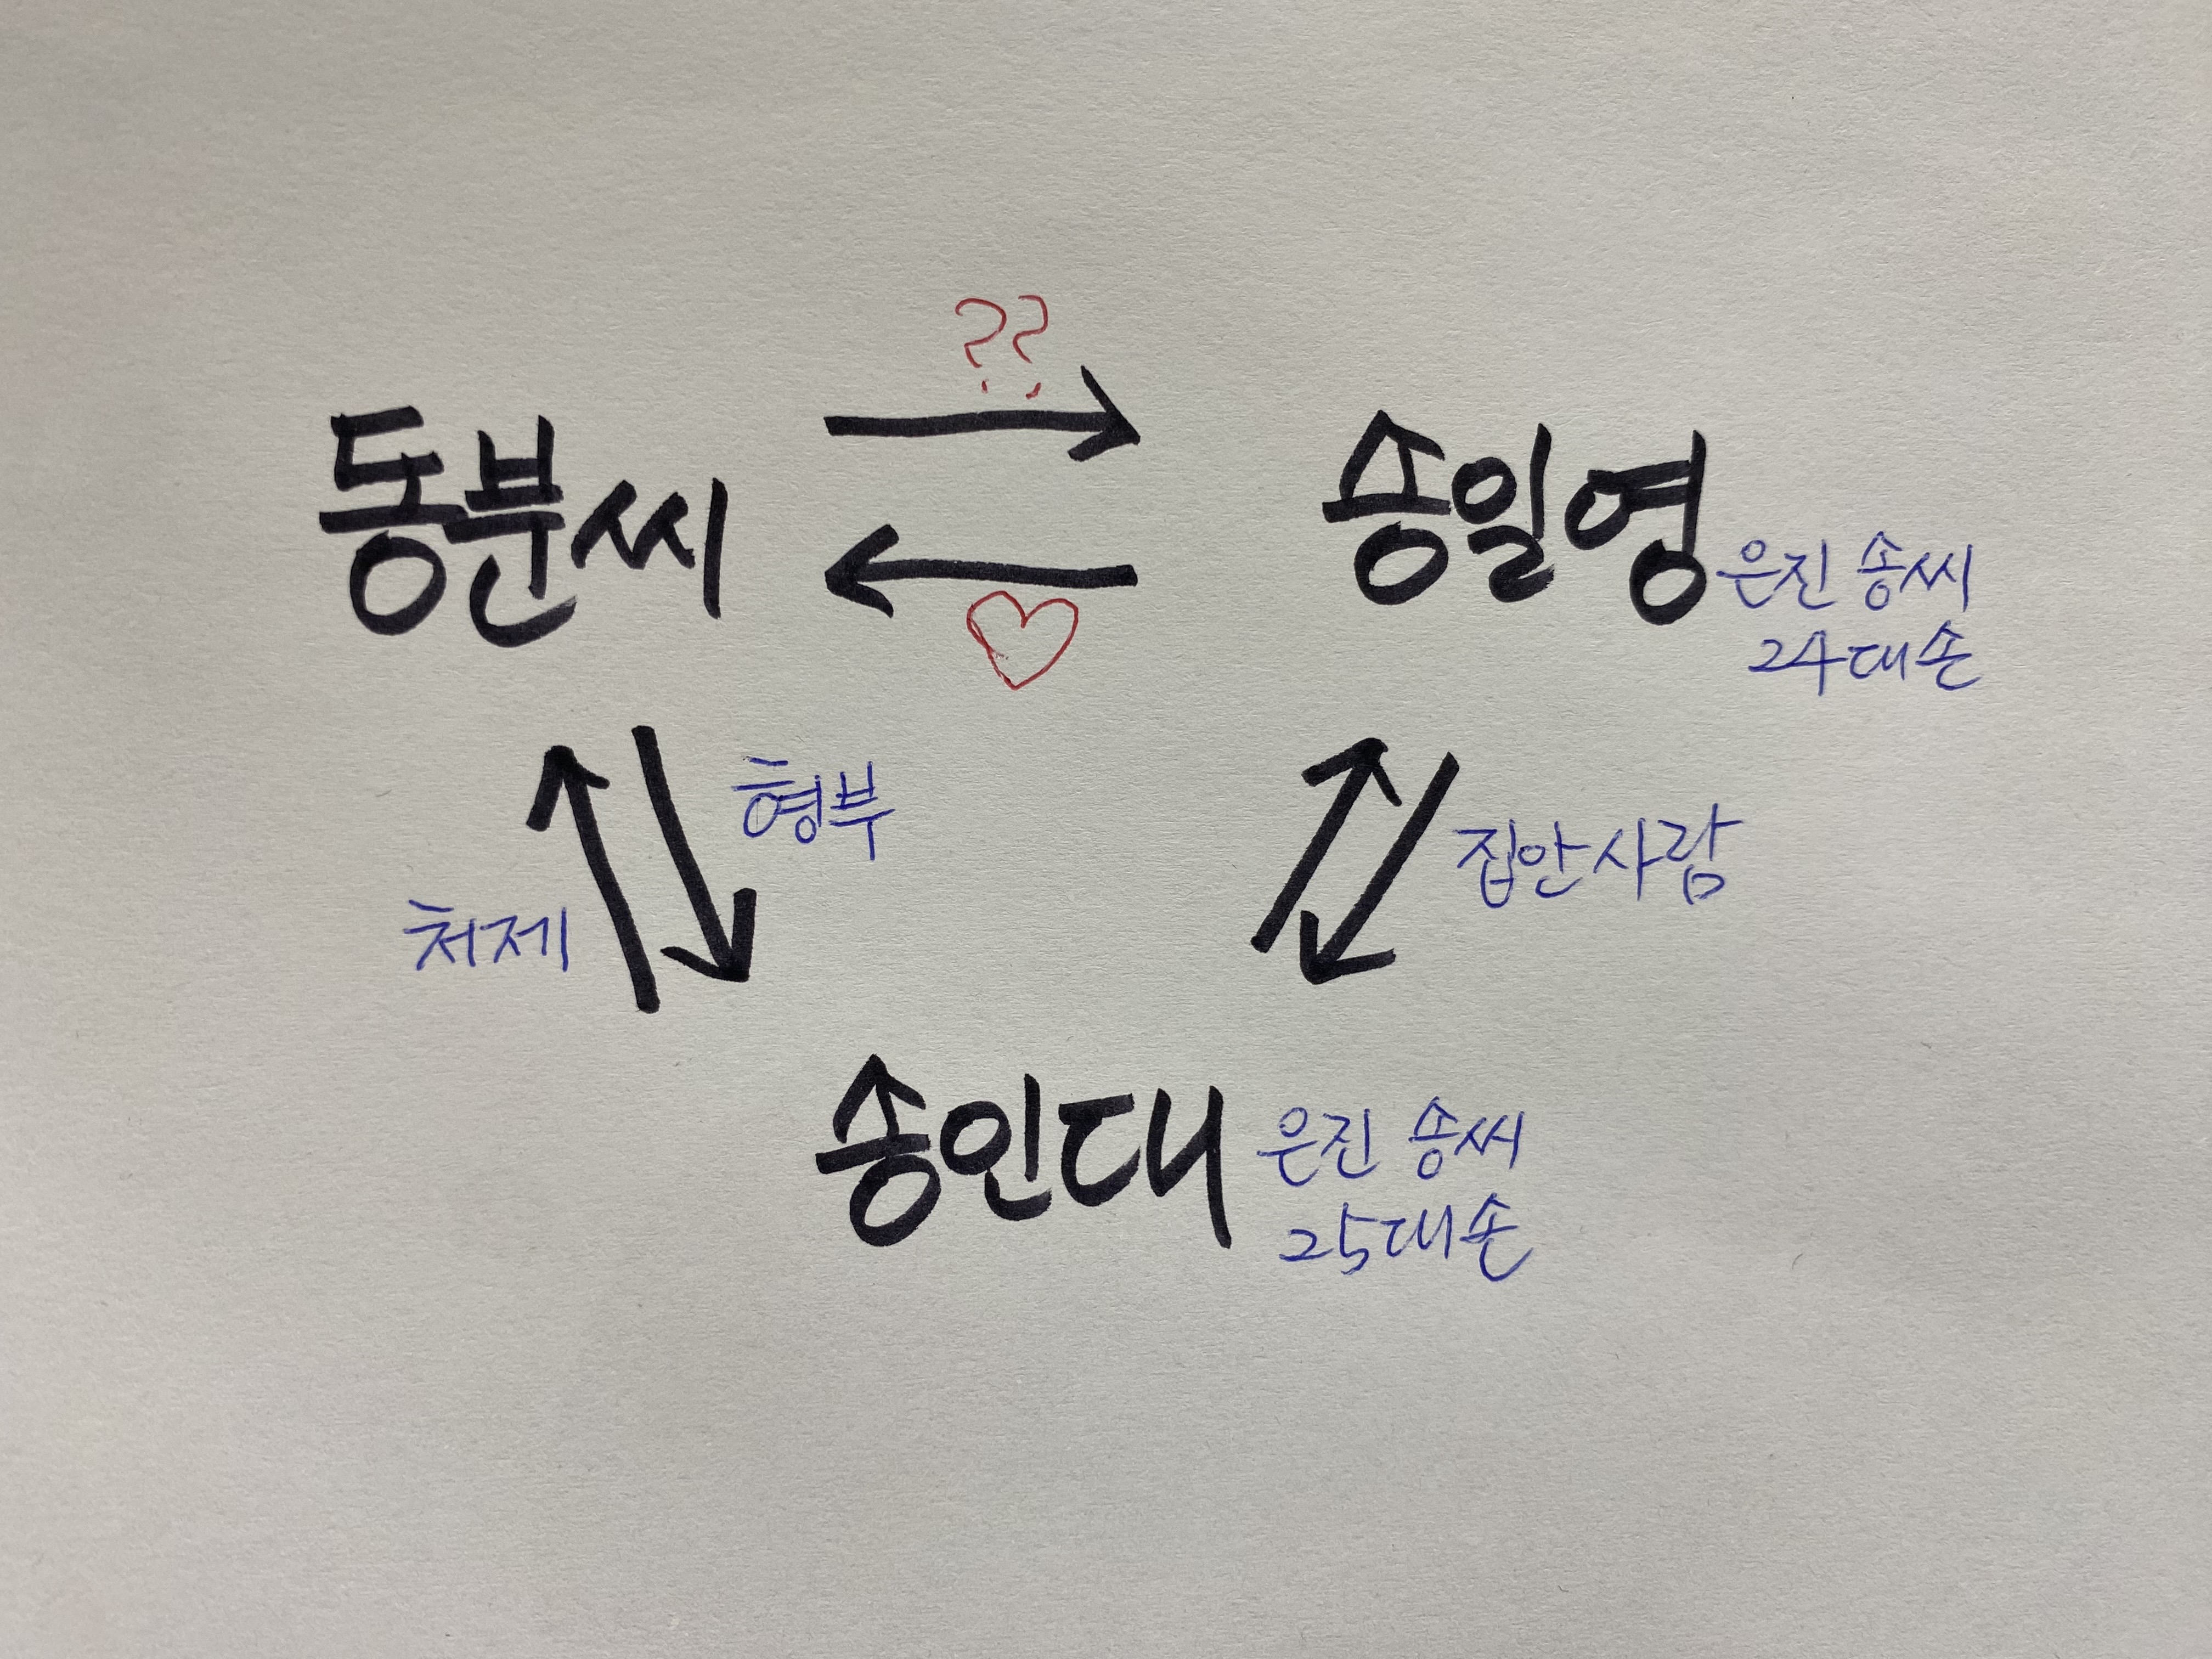 ??
동분씨
송일영
은진 송씨
24대손
형부
처제
집안사람
송인대
은진 송씨
25대손